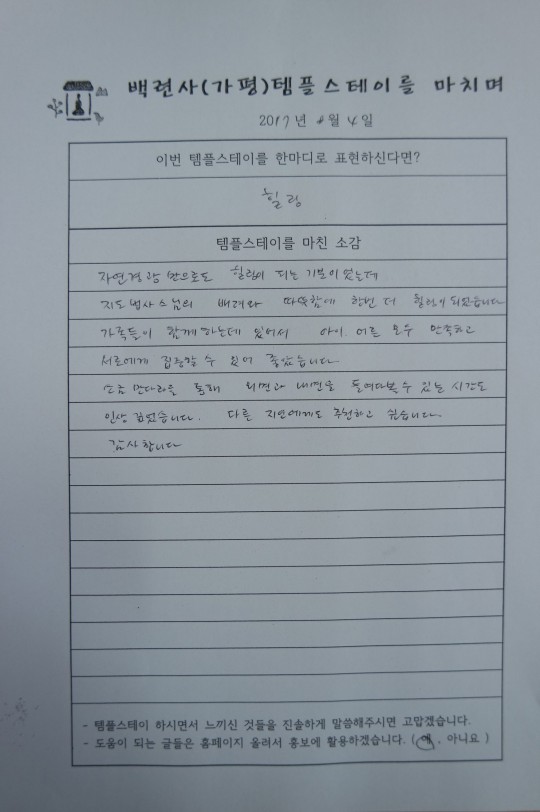 백련사(가평)템플스테이를 마치며
2017년 월 4일
이번 템플스테이를 한마디로 표현하신다면?
힐링
템플스테이를 마친 소감
자연경관 만으로도 힐링이 되는 기분이었는데
지도법사스님의 배려와 따뜻함에 한번 더 힐링이 되었습니다
가족들이 함께하는데 있어서 아이. 어른 모두 만족하고
서로에게 집중할 수 있어 좋았습니다.
소금 만다라를 통해 외면과 내면을 들여다볼 수 있는 시간도
인상 깊었습니다. 다른 지인에게도 추천하고 싶습니다.
감사합니다
- 템플스테이 하시면서 느끼신 것들을 진솔하게 말씀해주시면 고맙겠습니다.
- 도움이 되는 글들은 홈페이지 올려서 홍보에 활용하겠습니다. ( 예 , 아니요 )